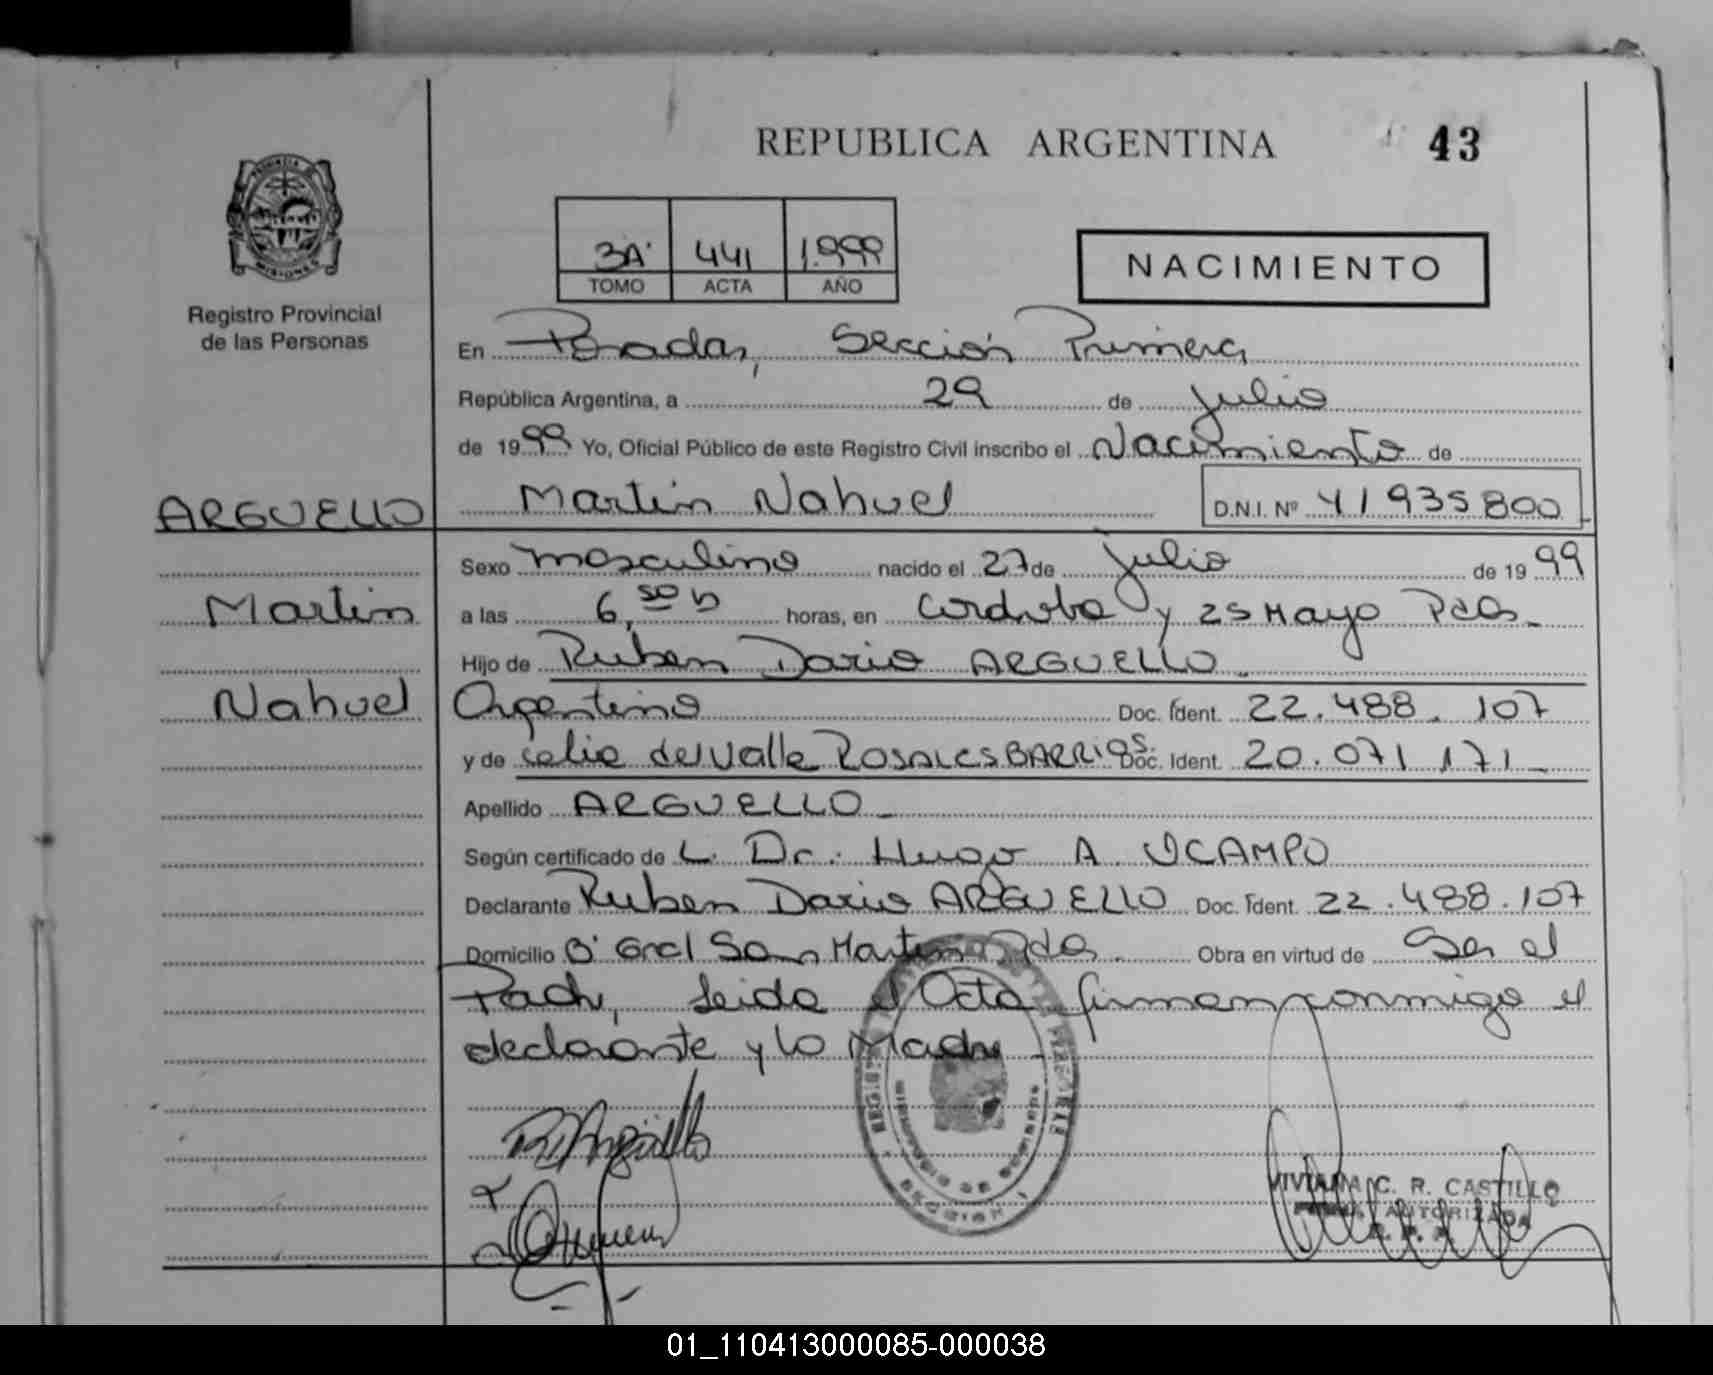 REPUBLICA ARGENTINA 43
PROVINCIA
MISIONES
Registro Provincial
de las Personas
3A' 441 1.999
TOMO ACTA AÑO
NACIMIENTO
En Posadas, Sección Primera
República Argentina, a 29 de julio
de 1999 Yo, Oficial Público de este Registro Civil inscribo el Nacimiento de
ARGUELLO Martin Nahuel D.N.I. Nº 41935800
Sexo masculino nacido el 27 de julio de 1999
Martin a las 6,50 h horas, en Cordoba y 25 Mayo Pdas.
Hijo de Ruben Dario ARGUELLO
Nahuel Argentino Doc. Ident. 22.488.107
y de Celia del Valle ROSALES BARRIOS. Doc. Ident. 20.071171
Apellido ARGUELLO
Según certificado de L. Dr. Hugo A. OCAMPO
Declarante Ruben Dario ARGUELLO Doc. Ident. 22.488.107
Domicilio Bº Gral San Martin Pdas. Obra en virtud de Ser el
Padre, Leida el Acta firman conmigo el
declarante y la Madre
VIVIANA C. R. CASTILLO
AUTORIZADA
R. P. P.
01_110413000085-000038